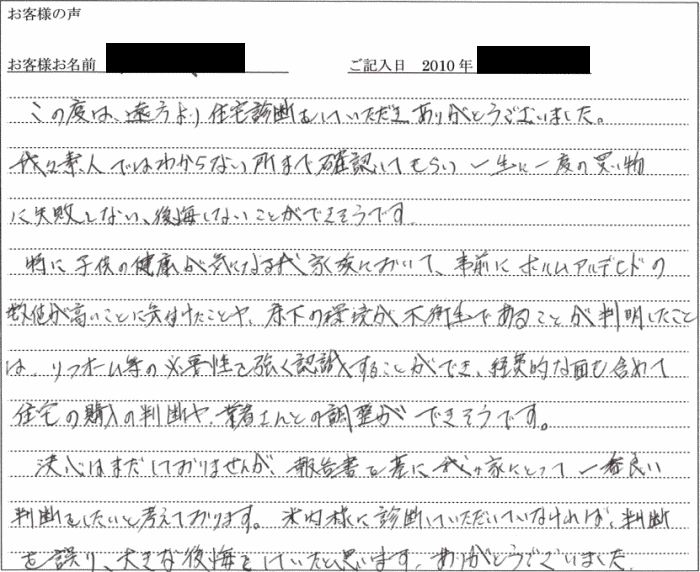 お客様の声
お客様お名前 ご記入日 2010年
この度は、遠方より住宅診断をしていただきありがとうございました。
我々素人ではわからない所まで確認してもらい一生に一度の買い物
に失敗しない、後悔しないことができそうです。
特に子供の健康が気になる我家族において、事前にホルムアルデヒドの
数値が高いことに気付けたことや、床下の環境が不衛生であることが判明したこと
は、リフォーム等の必要性を強く認識することができ、経費的な面も含めて
住宅の購入の判断や、業者さんとの調整ができそうです。
決心はまだしておりませんが、報告書を基に我が家にとって一番良い
判断をしたいと考えております。米内様に診断していただいていなければ、判断
を誤り、大きな後悔をしていたと思います。ありがとうございました。